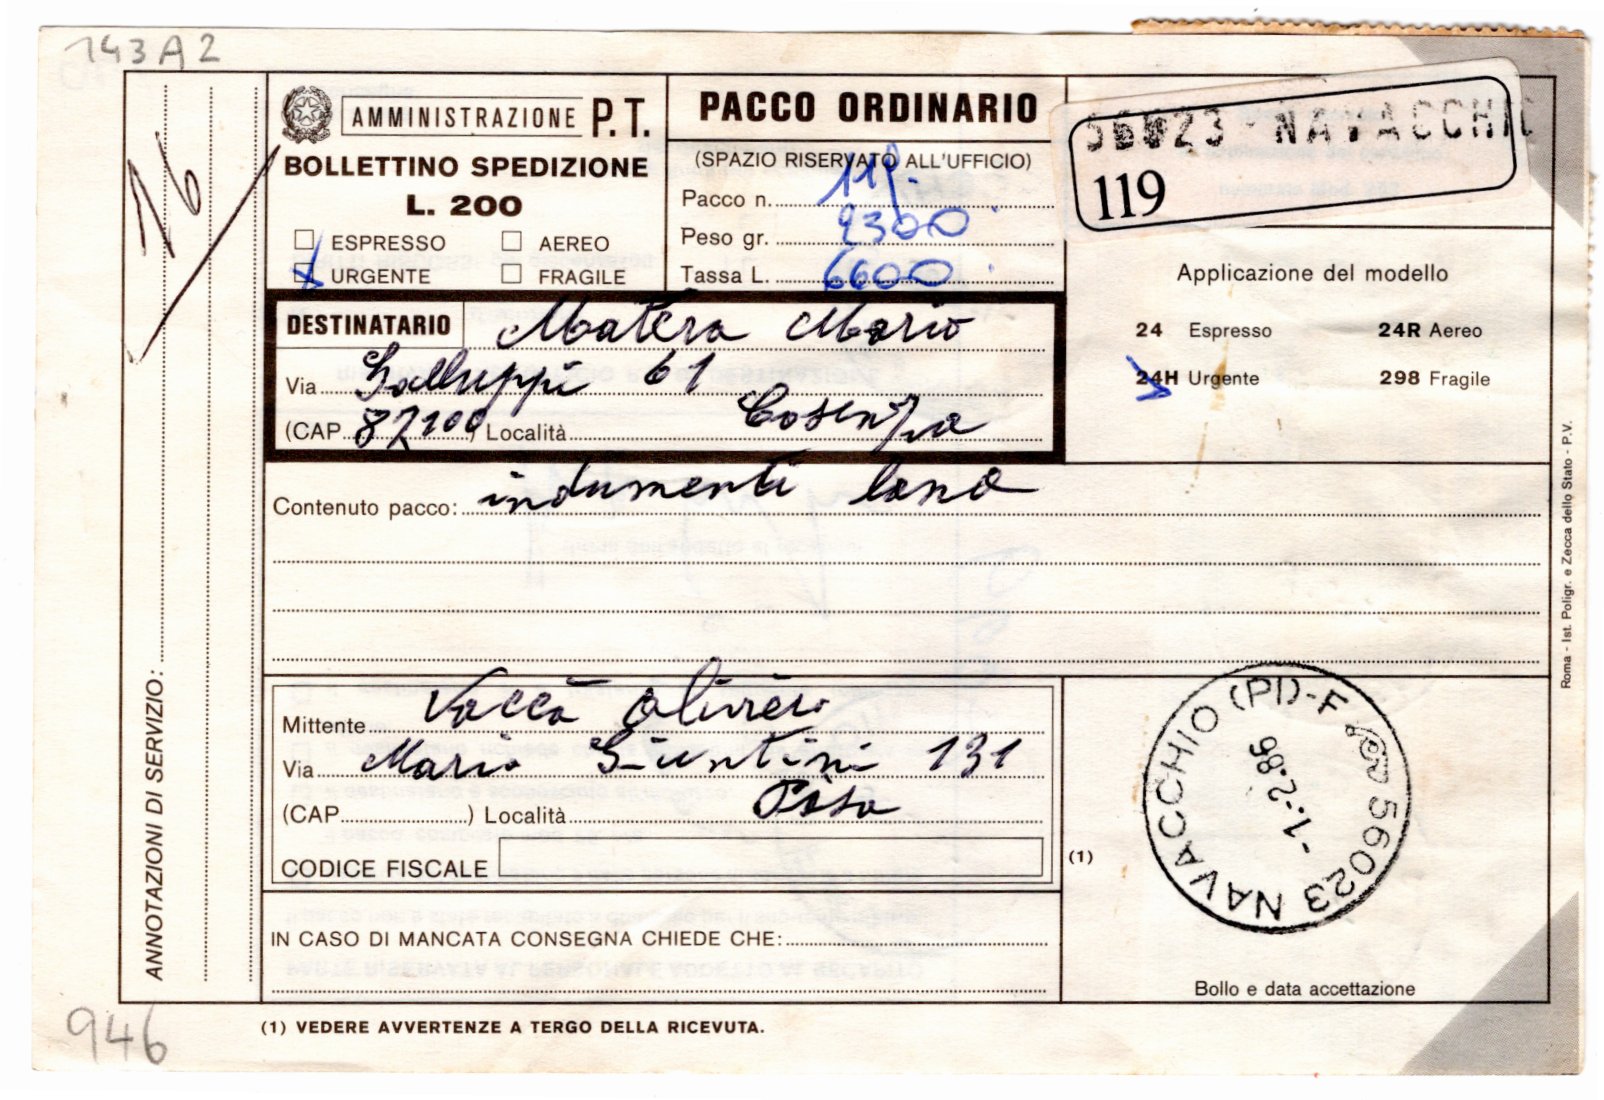 143A2
AMMINISTRAZIONE P.T.
BOLLETTINO SPEDIZIONE
L. 200
ESPRESSO AEREO
URGENTE FRAGILE
PACCO ORDINARIO
(SPAZIO RISERVATO ALL'UFFICIO)
Pacco n. 119
Peso gr. 2300
Tassa L. 6600
56023 - NAVACCHIO
119
Applicazione del modello
24 Espresso 24R Aereo
24H Urgente 298 Fragile
16
DESTINATARIO Matera Mario
Via Galluppi 61
(CAP 87100) Località Cosenza
Contenuto pacco: indumenti lana
Mittente Vaccà Oliviero
Via Mario Giuntini 131
(CAP) Località Pisa
CODICE FISCALE
(1)
56023 NAVACCHIO (PI)-F
-1.-2.86
IN CASO DI MANCATA CONSEGNA CHIEDE CHE:
Bollo e data accettazione
ANNOTAZIONI DI SERVIZIO:
Roma - Ist. Poligr. e Zecca dello Stato - P.V.
(1) VEDERE AVVERTENZE A TERGO DELLA RICEVUTA.
946